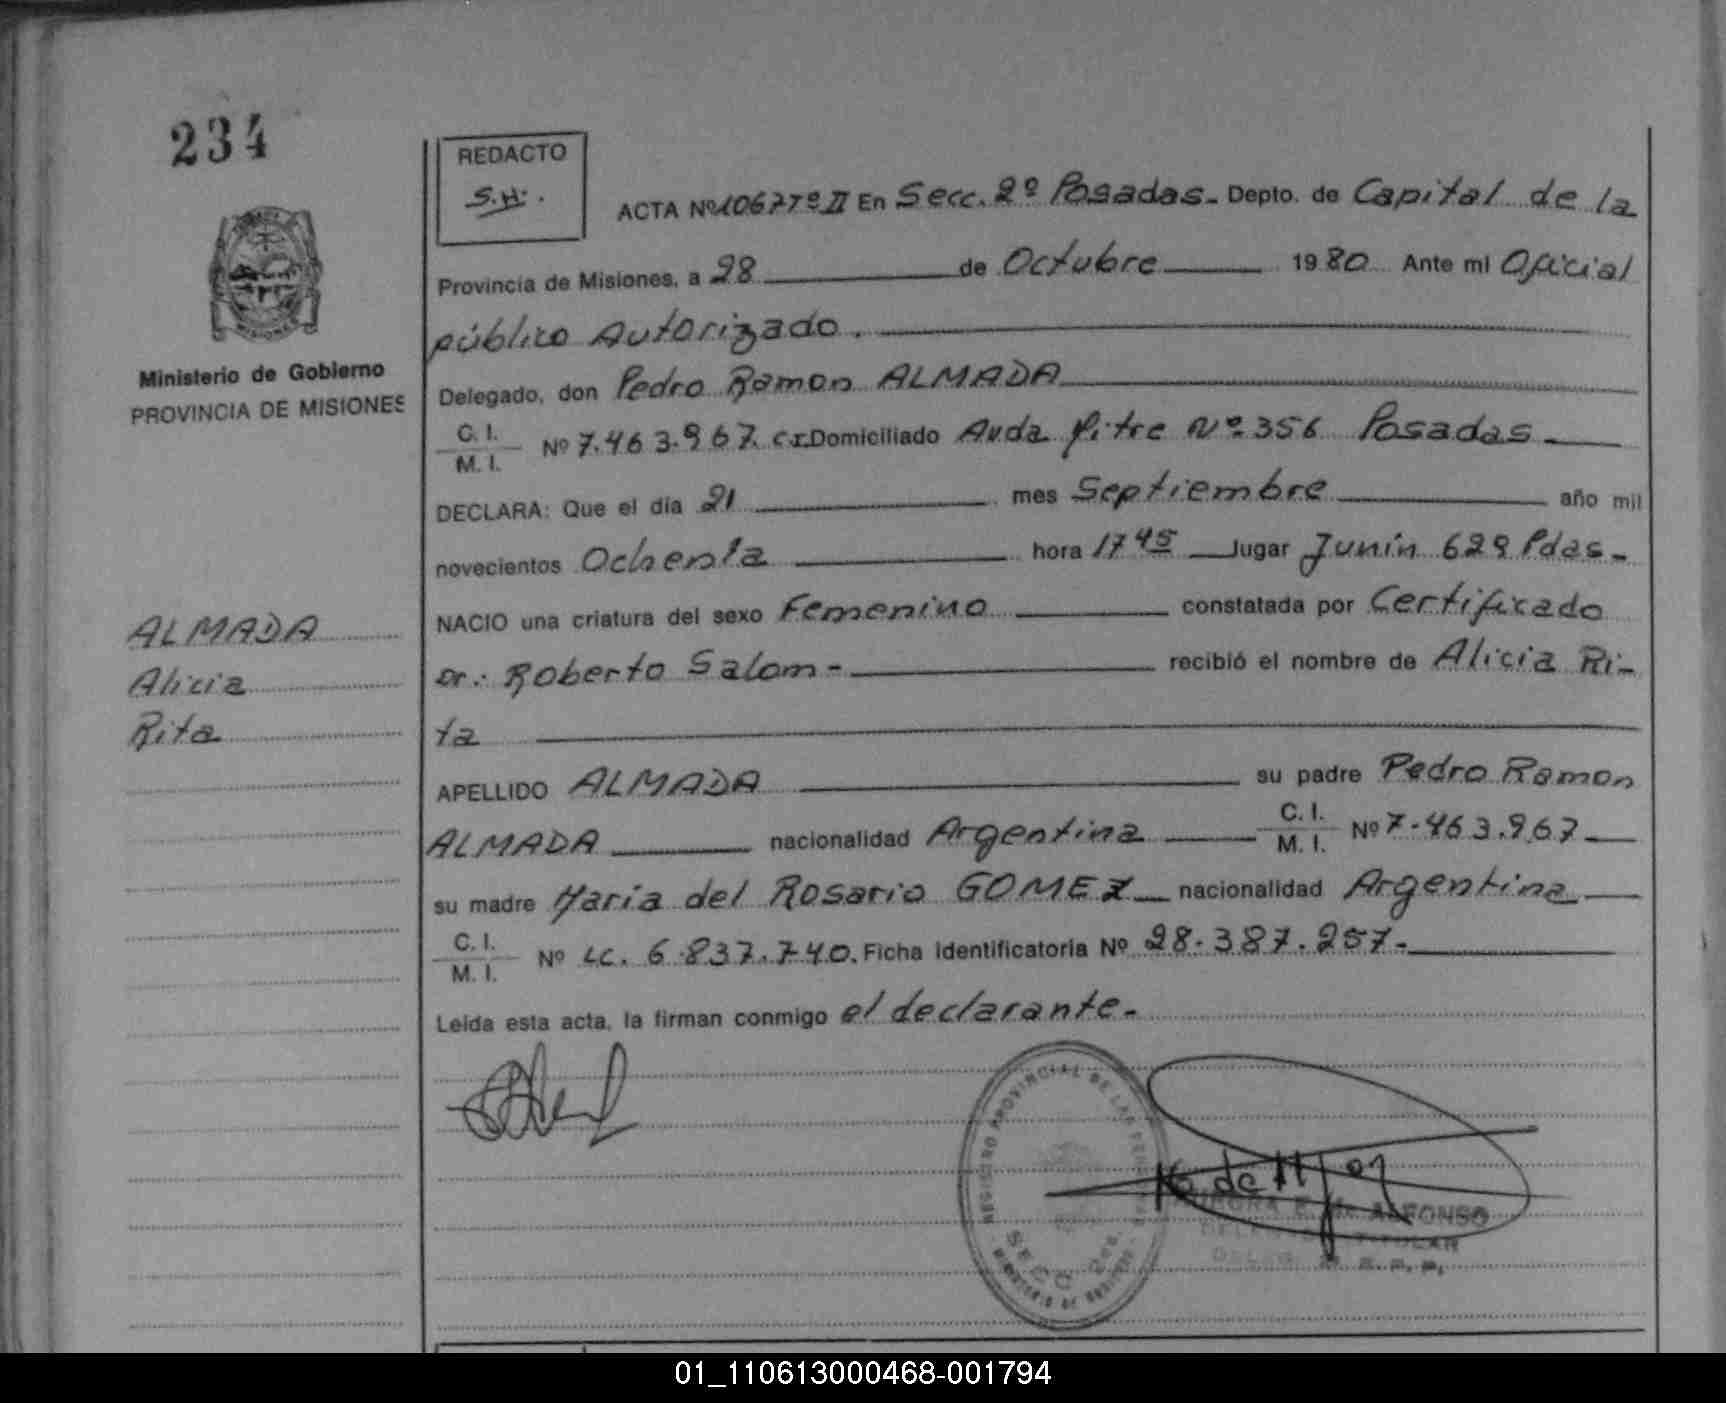 234
REDACTO
S.H.
ACTA Nº 1067 Tº II En Secc. 2º Posadas. Depto. de Capital de la
Provincia de Misiones, a 28 de Octubre 1980 Ante mi Oficial
público Autorizado.
Delegado, don Pedro Ramon ALMADA
C. I.
M. I.
Nº 7.463.967. C.I. Domiciliado Avda Mitre Nº 356 Posadas
DECLARA: Que el día 21 mes Septiembre año mil
novecientos Ochenta hora 17 45 lugar Junín 629 Pdas.
NACIO una criatura del sexo Femenino constatada por Certificado
Dr.: Roberto Salom- recibió el nombre de Alicia Ri-
ta
APELLIDO ALMADA su padre Pedro Ramon
ALMADA nacionalidad Argentina C. I.
M. I. Nº 7.463.967
su madre María del Rosario GOMEZ nacionalidad Argentina
C. I.
M. I.
Nº LC. 6.837.740. Ficha Identificatoria Nº 28.387.257.-
Leída esta acta, la firman conmigo el declarante.-
Ministerio de Gobierno
PROVINCIA DE MISIONES
ALMADA
Alicia
Rita
MISIONES
REGISTRO PROVINCIAL DE LAS PERSONAS
ALFONSO
01_110613000468-001794